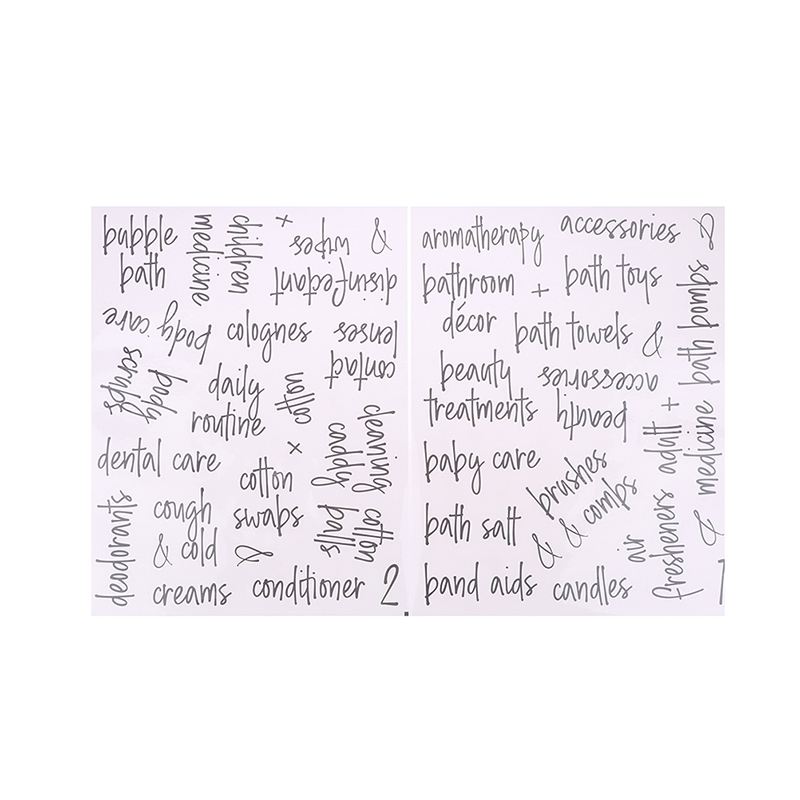 bubble
bath
children
medicine
+
&
disinfectant
wipes
body care
colognes
contact
lenses
body
scrubs
daily
routine
cotton
+
cleaning
caddy
dental care
cotton
swaps
cotton
balls
deodorants
cough
& cold
&
creams
conditioner
2
aromatherapy
accessories
&
bathroom
décor
+
bath toys
bath bombs
bath towels
&
beauty
treatments
beauty
accessories
+
adult
medicine
baby care
brushes
& combs
&
bath salt
air
fresheners
&
band aids
candles
1